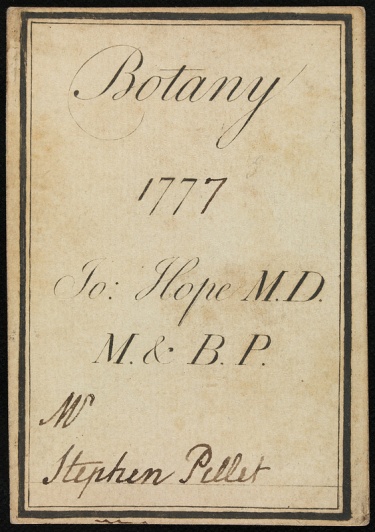 Botany
1777
Jo: Hope M.D.
M. & B. P.
Mr
Stephen Pellet